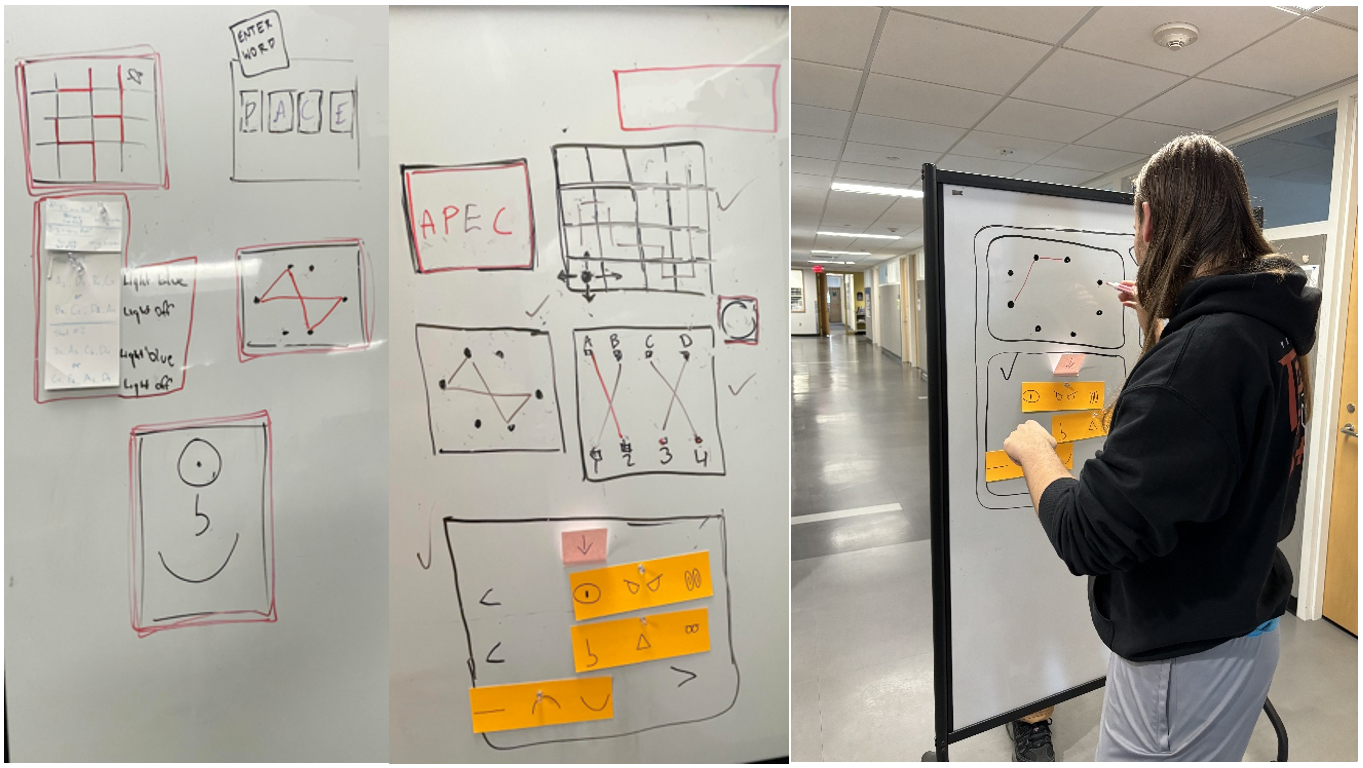 ENTER
WORD
P A C E
Light blue
Light off
Light blue
Light off
APEC
A B C D
1 2 3 4